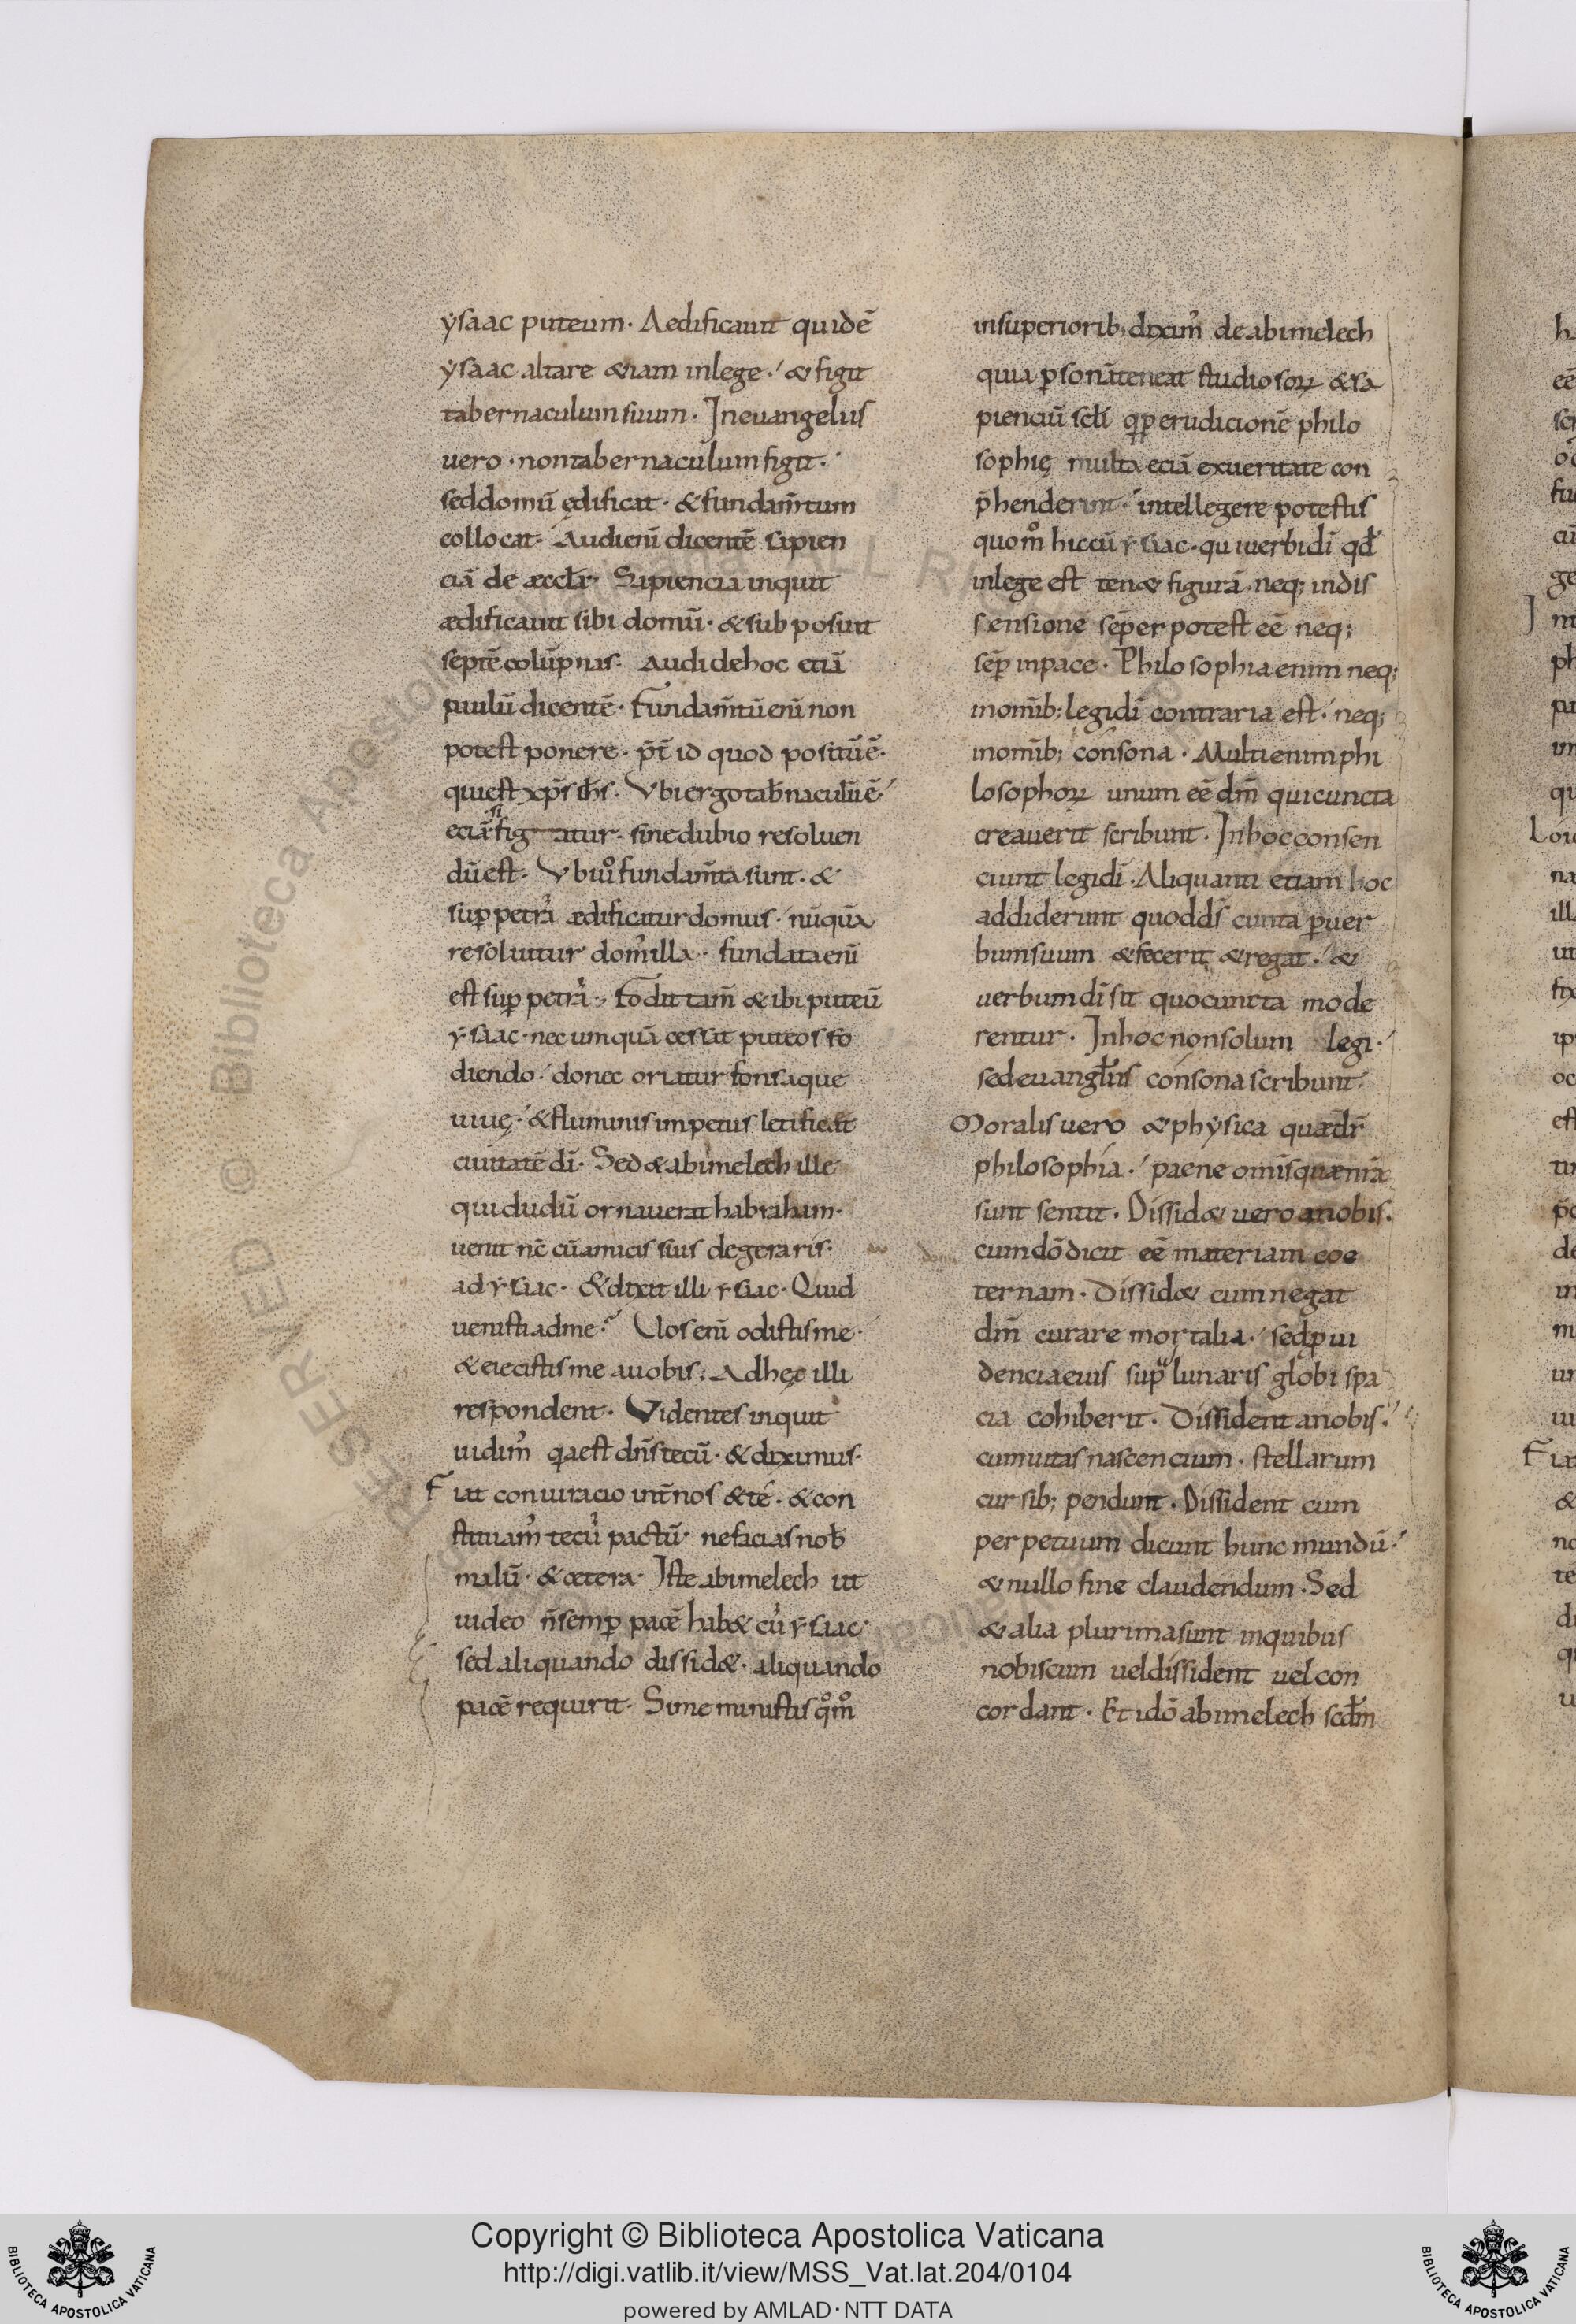 ysaac puteum· Aedificauit quidē
ysaac altare &iam inlege·́ & figit
tabernaculum suum· Ineuangeliis
uero· nontabernaculum figit·́
seddomū ędificat· & fundam̄tum
collocat· Audieni dicentē sapien
ciā de æccl̄a· Sapiencia inquit
ædificauit sibi domū· & sub posuit
septē colūpnas· Audi dehoc etiā
paulū dicentē· Fundam̄tū eni non
potest ponere· p̄t̄ id quod positū ē·
qui est xp̄s ih̄s· Vbi ergo tab̄naculū ē·́
eciā si fig atur· sine dubio resoluen
dū est· Vbi uͦ fundam̄ta sunt· &
sup̱ petrā ædificatur domus·́ nūquā
resoluitur dom᾽ illa· fundata eni
est sup̱ petrā· Fodit tam̄ & ibi puteū
ysaac· nec umquā cessat puteos fo
diendo·́ donec oriatur fons aque
uiuę·́ & fluminis impetus letificat
ciuitatē dī· Sed & abimelech ille
qui dudū ornauerat habraham·
uenit nc̄ cū amicis suis degeraris·
ad ysaac· & dixit illi ysaac· Quid
uenisti adme? Uos eni odistis me·́
& eiecistis me auobis· Ad hęc illi
respondent· Videntes inquit
uidim᾽ q̱a est dn̄s tecū· & diximus·
Fiat coniuracio int̄ nos & té· & con
stituam᾽ tecū pactū· nefacias nob̄
malū· & cetera· Iste abimelech ut
uideo n̄ semp̱ pacē hab& cū ysaac·
sed aliquando dissid&· aliquando
pacē requirit· Si meministis qͦmͦ
insuperiorib; dixim᾽ de abimelech
quia p̱sonā teneat studiosoꝝ & sa
pienciū scl̄i q̱ p̱ erudicionē philo
sophię multa eciā exueritate con
p̄henderint·́ intellegere potestis
quomͦ hic cū ysaac· qui uerbi dī qd̄
inlege est ten& figurā· neq; indis
sensionē sēper potest eē neq;
sēp̱ inpace· Philosophia enim neq;
inomīb; legi dī contraria est·́ neq;
inomīb; consona· Multi enim phi
losophoꝝ unum eē dm̄ qui cuncta
creauerit scribunt· In hoc consen
ciunt legi dī· Aliquanti etiam hoc
addiderunt quod ds̄ cunta p̱ uer
bum suum & fecerit & regat·́ &
uerbum dī sit quo cuncta mode
rentur· In hoc non solum legi·́
sed euangl̄iis consona scribunt·
Moralis uero & physica quæ dr̄
philosophia·́ paene omīs quæ nr̄a
sunt sentit· Dissid& uero anobis·
cum dō dicit eē materiam coe
ternam· Dissid& cum negat
dm̄ curare mortalia·́ sed p̱ ui
dencia eius sup̱ᵃ lunaris globi spa
cia cohiberit· Dissident anobis·́
cum uitas nascencium· stellarum
cursib; pendunt· Dissident cum
perpetuum dicunt hunc mundū·́
& nullo fine claudendum· Sed
& alia plurima sunt inquibus
nobiscum uel dissident uel con
cordant· Et idō abimelech scd̄m
Copyright © Biblioteca Apostolica Vaticana
http://digi.vatlib.it/view/MSS_Vat.lat.204/0104
powered by AMLAD·NTT DATA